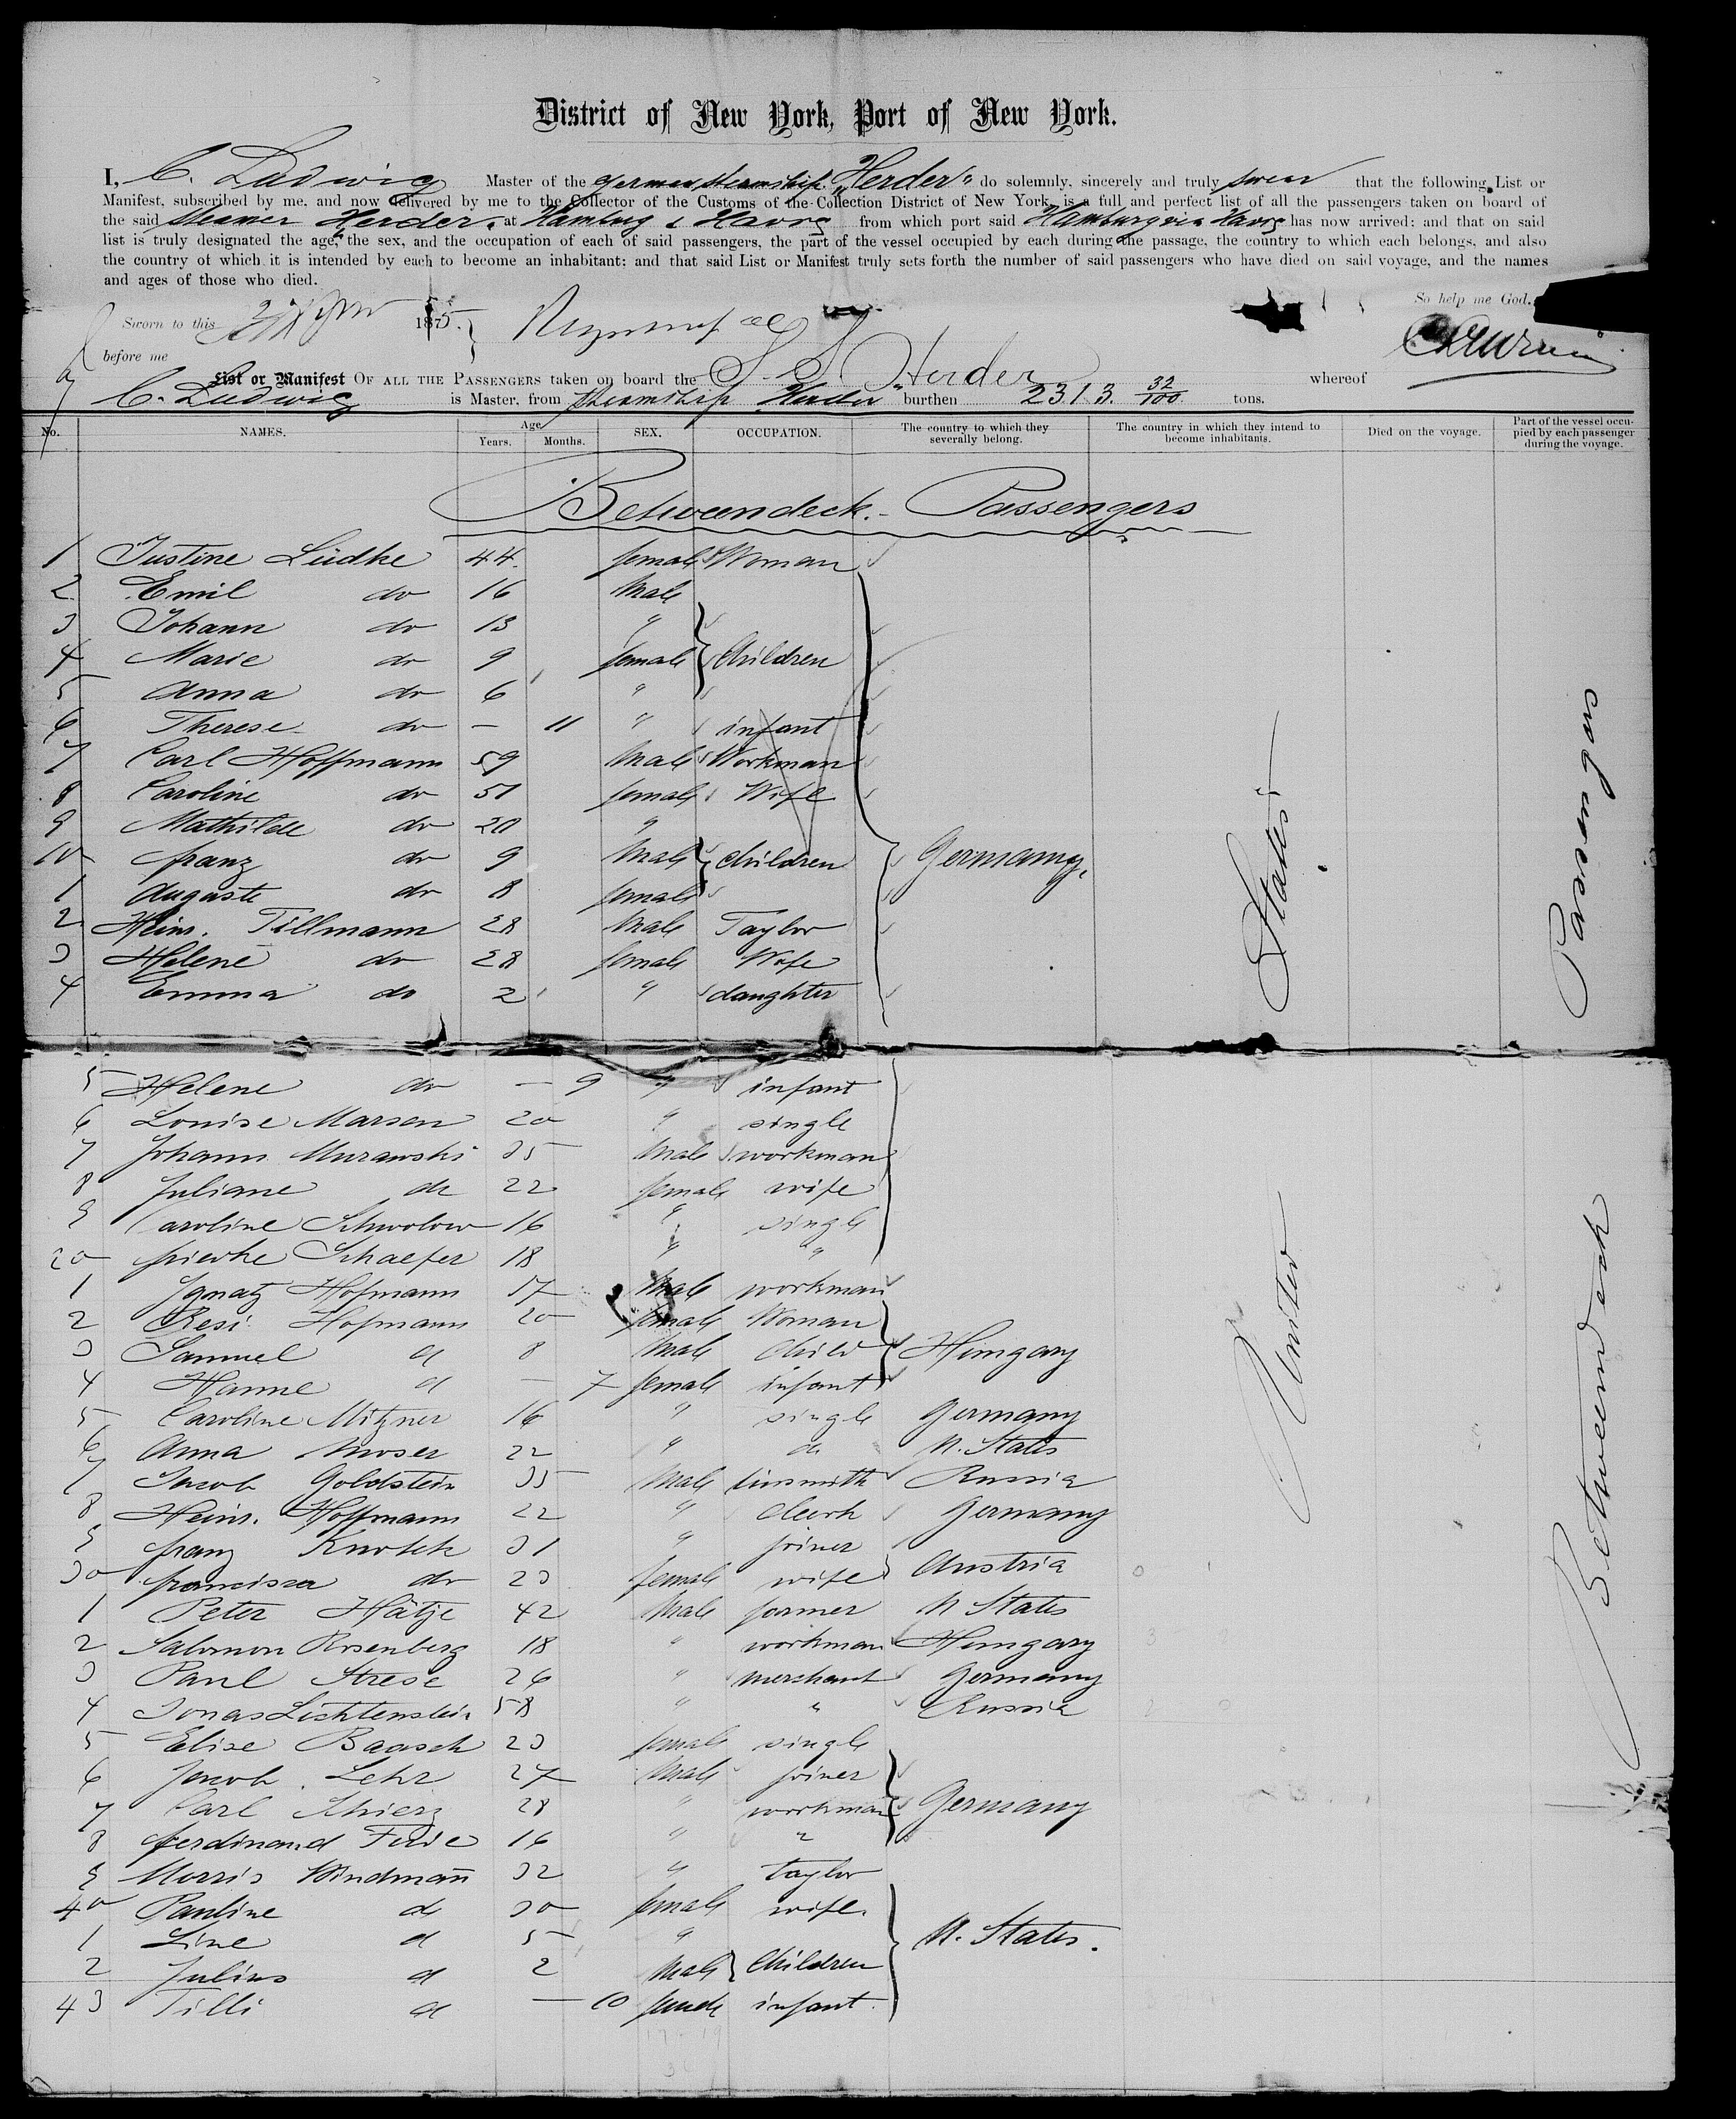 District of New York, Port of New York.
I, C. Ludwig Master of the german steamship "Herder" do solemnly, sincerely and truly swear that the following List or
Manifest, subscribed by me, and now delivered by me to the Collector of the Customs of the Collection District of New York, is a full and perfect list of all the passengers taken on board of
the said steamer Herder at Hamburg & Havre from which port said Hamburg via Havre has now arrived: and that on said
list is truly designated the age, the sex, and the occupation of each of said passengers, the part of the vessel occupied by each during the passage, the country to which each belongs, and also
the country of which it is intended by each to become an inhabitant; and that said List or Manifest truly sets forth the number of said passengers who have died on said voyage, and the names
and ages of those who died.
So help me God.
Sworn to this 187
before me
List or Manifest OF ALL THE PASSENGERS taken on board the S. S. Herder whereof
C. Ludwig is Master, from steamship Herder burthen 2313. 32/100 tons.
No. NAMES. Age Years. Months. SEX. OCCUPATION. The country to which they severally belong. The country in which they intend to become inhabitants. Died on the voyage. Part of the vessel occupied by each passenger during the voyage.
Betweendeck - Passengers
1 Justine Lüdke 44 female Woman
2 Emil do 16 Male
3 Johann do 13 "
4 Marie do 9 female Children
5 Anna do 6 "
6 Therese do — 11 " infant
7 Carl Hoffmann 59 Male Workman
8 Caroline do 51 female Wife
9 Mathilde do 20 "
10 franz do 9 Male children Germany.
1 Auguste do 8 female
2 Heinr. Tillmann 28 Male Taylor
3 Helene do 28 female Wife
4 Emma do 2 " daughter
5 Helene do — 9 " infant
6 Louise Marsen 20 " single
7 Johann Murawski 35 Male workman
8 Juliane do 22 female wife
9 Caroline Schwolow 16 " single
20 frievke Schaefer 18 " "
1 Ignatz Hofmann 17 Male workman
2 Resi Hofmann 20 female Woman
3 Samuel d 8 Male Child Hungary
4 Hanne d — 7 female infant
5 Caroline Mitzner 16 " single Germany
6 Anna Moser 22 " do U. States
7 Jacob Goldstein 35 Male tinsmith Russia
8 Heinr. Hoffmann 22 " Clerk Germany
9 franz Knotek 31 " joiner
30 francisca do 23 female wife Austria
1 Peter Hätje 42 Male farmer U States
2 Salomon Rosenberg 18 " workman Hungary
3 Paul Strese 26 " merchant Germany
4 Jonas Lichtenstein 58 " " Russia
5 Elise Baasch 23 female single
6 Jacob Lehr 27 Male joiner
7 Carl Schierz 28 " workman Germany
8 ferdinand 16 " "
9 Morris Windmann 32 " taylor
40 Pauline d 30 female wife
1 Line d 5 " U. States.
2 Julius d 2 Male Children
43 Tilli d — 10 female infant
United States
Betweendeck Passengers